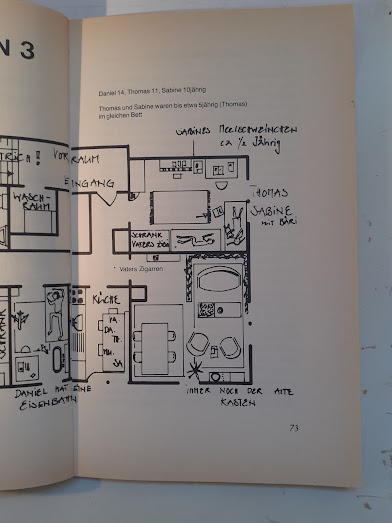 N 3
Daniel 14, Thomas 11, Sabine 10jährig
Thomas und Sabine waren bis etwa 5jährig (Thomas)
im gleichen Bett
SABINES MEERSCHWEINCHEN
ca ½ Jährig
VORRAUM
EINGANG
WASCH-
RAUM
THOMAS
SABINE
MIT BÄRI
SCHRANK
VATERS ZIG*
* Vaters Zigarren
KÜCHE
VA
DA.
TH.
MU.
SA
SCHRANK
DANIEL HAT EINE
EISENBAHN
IMMER NOCH DER ALTE
KASTEN
73